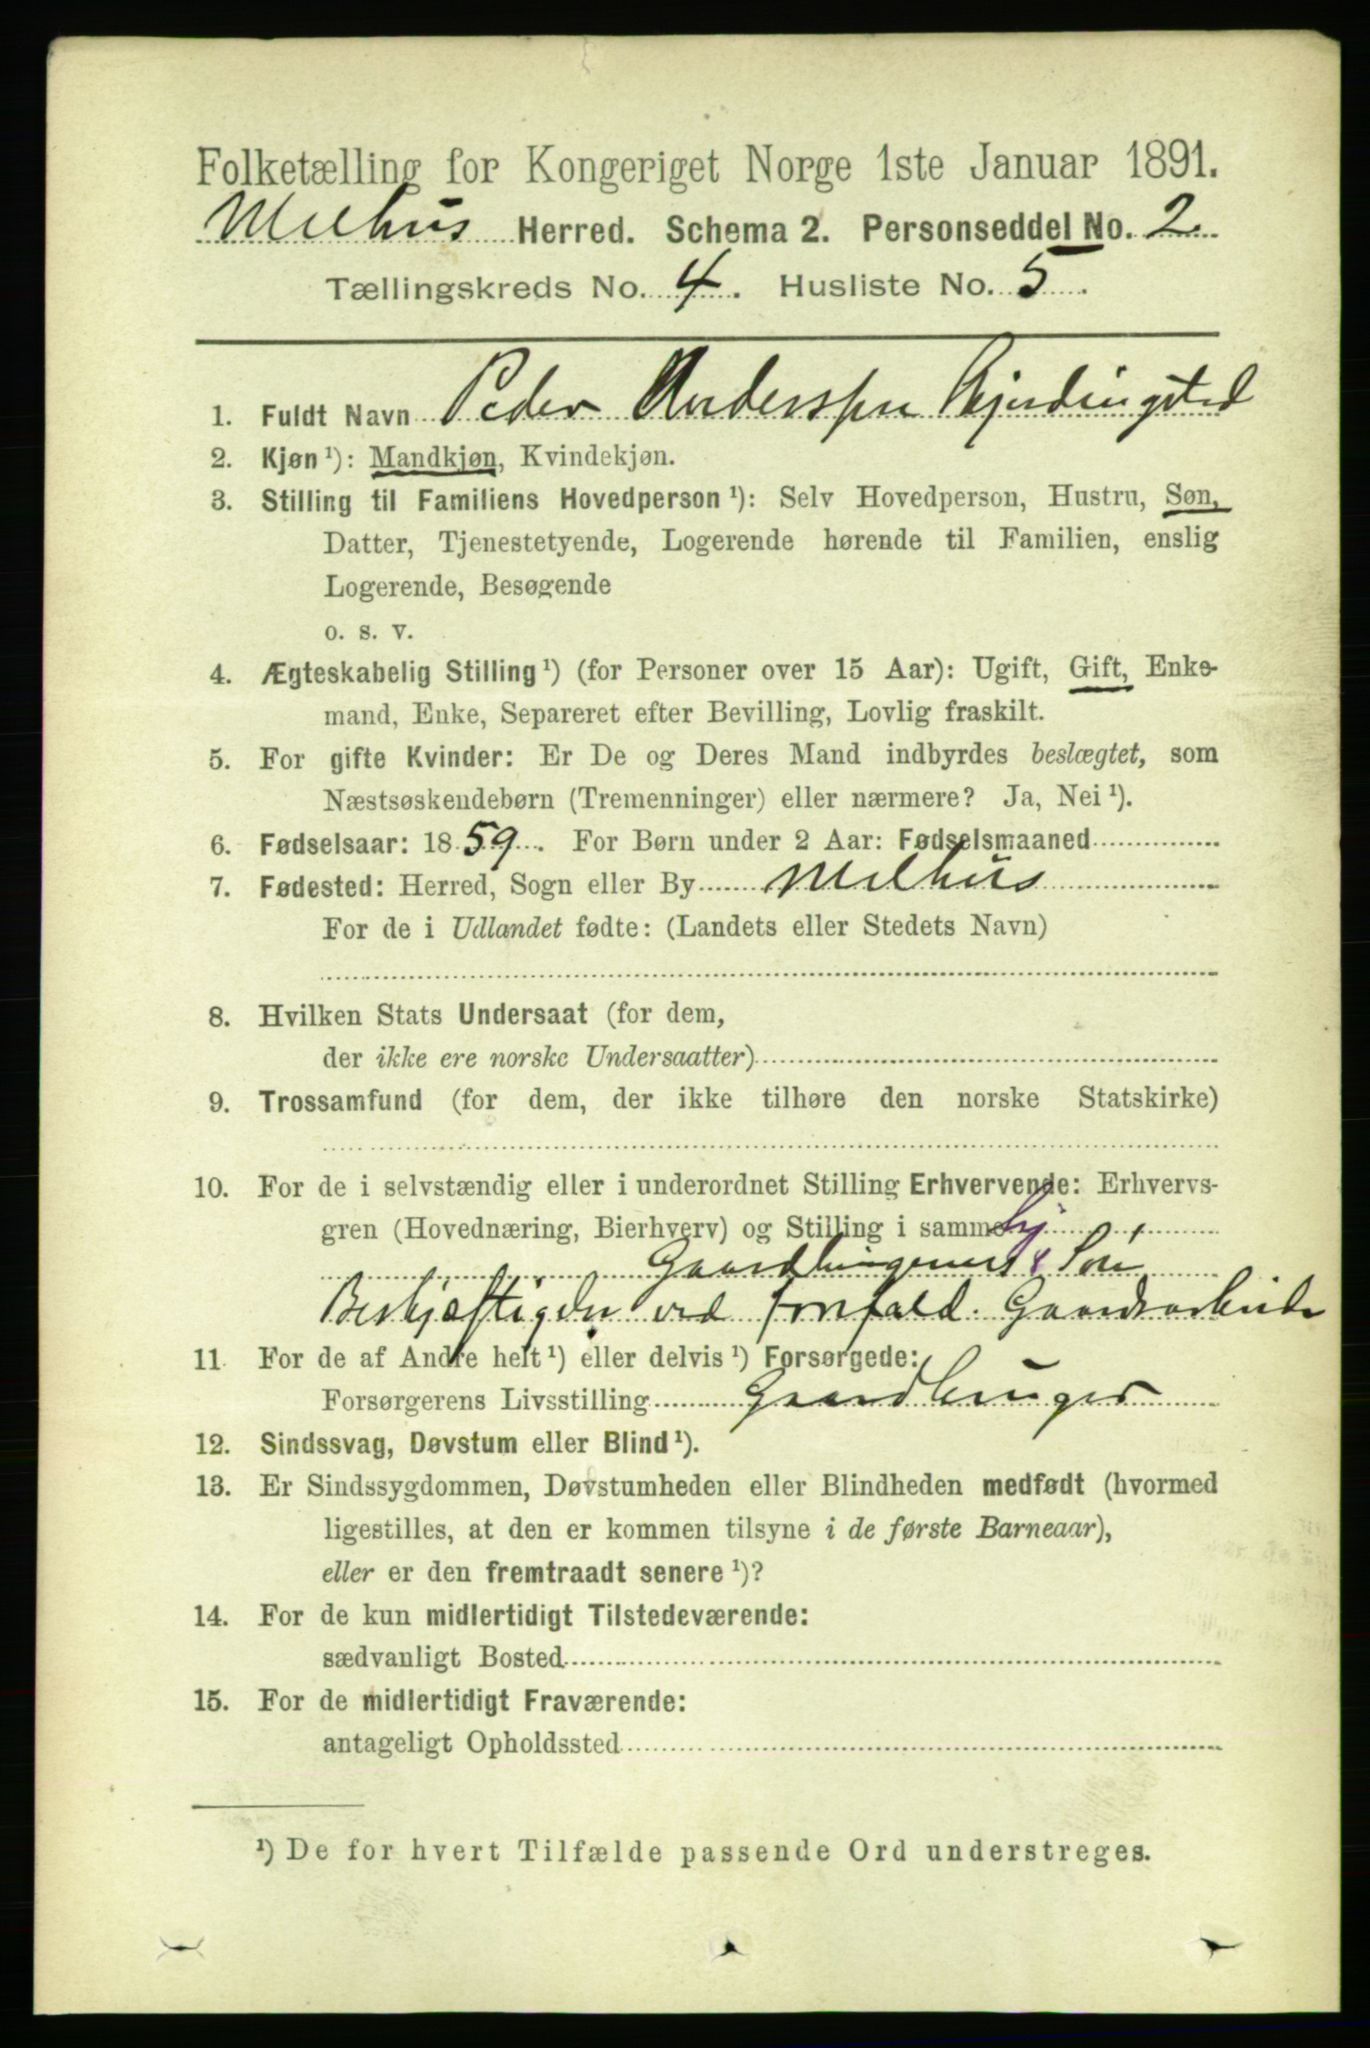 Folketælling for Kongeriget Norge 1ste Januar 1891.
Melhus Herred. Schema 2. Personseddel No. 2
Tællingskreds No. 4. Husliste No. 5.
1. Fuldt Navn Peder Anderssen
2. Kjøn ¹): Mandkjøn, Kvindekjøn.
3. Stilling til Familiens Hovedperson ¹): Selv Hovedperson, Hustru, Søn,
Datter, Tjenestetyende, Logerende hørende til Familien, enslig
Logerende, Besøgende
o. s. v.
4. Ægteskabelig Stilling ¹) (for Personer over 15 Aar): Ugift, Gift, Enke-
mand, Enke, Separeret efter Bevilling, Lovlig fraskilt.
5. For gifte Kvinder: Er De og Deres Mand indbyrdes beslægtet, som
Næstsøskendebørn (Tremenninger) eller nærmere? Ja, Nei ¹).
6. Fødselsaar: 1859. For Børn under 2 Aar: Fødselsmaaned
7. Fødested: Herred, Sogn eller By Melhus
For de i Udlandet fødte: (Landets eller Stedets Navn)
8. Hvilken Stats Undersaat (for dem,
der ikke ere norske Undersaatter)
9. Trossamfund (for dem, der ikke tilhøre den norske Statskirke)
10. For de i selvstændig eller i underordnet Stilling Erhvervende: Erhvervs-
gren (Hovednæring, Bierhverv) og Stilling i samme
Gaardbrugerens Søn
Beskjæftiget ved forefald. Gaardsarbeide
11 For de af Andre helt ¹) eller delvis ¹) Forsørgede:
Forsørgerens Livsstilling Gaardbruger
12. Sindssvag, Døvstum eller Blind ¹).
13. Er Sindssygdommen, Døvstumheden eller Blindheden medfødt (hvormed
ligestilles, at den er kommen tilsyne i de første Barneaar),
eller er den fremtraadt senere ¹)?
14. For de kun midlertidigt Tilstedeværende:
sædvanligt Bosted
15. For de midlertidigt Fraværende:
antageligt Opholdssted
¹) De for hvert Tilfælde passende Ord understreges.